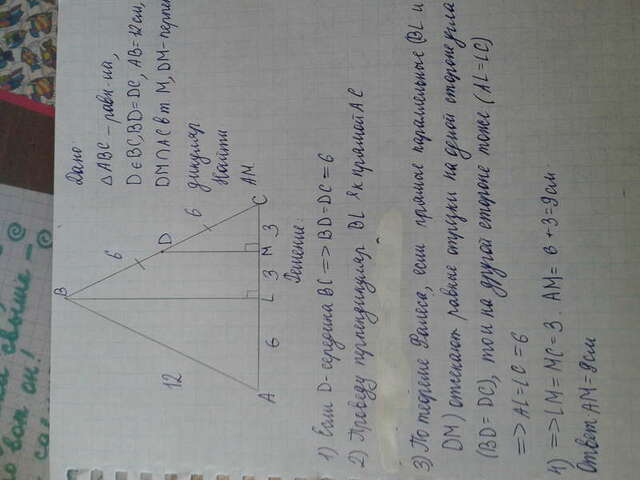 Дано:
△ABC – равн-ий,
D∈BC, BD=DC, AB=12см,
DM∩AC в т. M, DM-перпен
дикуляр
Найти
AM.
B
6
D
6
12
A
6
L
3
M
3
C
Решение:
1) Если D-середина BC => BD=DC=6
2) Проведу перпендикуляр BL к прямой AC
3) По теореме Фалеса, если прямые параллельные (BL и
DM) отсекают равные отрезки на одной стороне угла
(BD=DC), то и на другой стороне тоже (AL=LC)
=> AL=LC=6
4) => LM=MC=3. AM=6+3=9см.
Ответ AM=9см